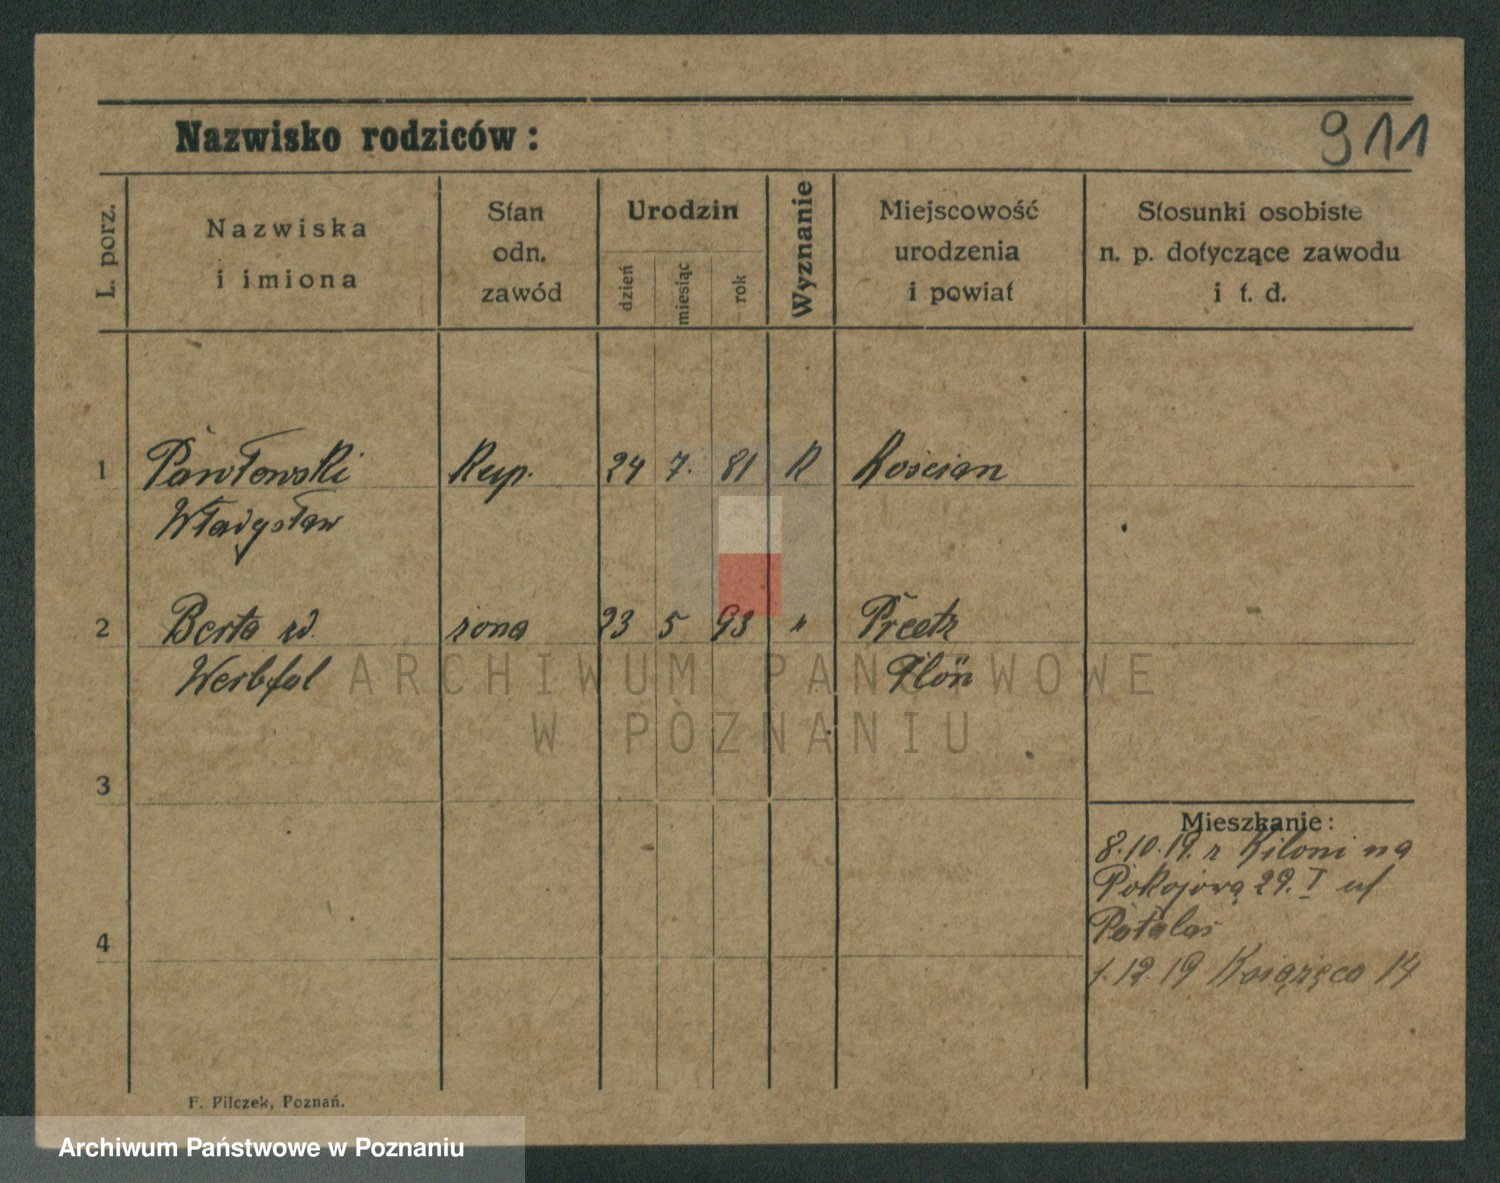 Nazwisko rodziców:
911
L. porz.
Nazwiska
i imiona
Stan
odn.
zawód
Urodzin
dzień
miesiąc
rok
Wyznanie
Miejscowość
urodzenia
i powiat
Stosunki osobiste
n. p. dotyczące zawodu
i t. d.
1 Pawłowski Kup. 24 7. 81 R Kościan
Władysław
2 Berta zd. żona 23 5 93 " Preetz
Werbfal Plön
3
4
Mieszkanie:
8.10.19. z Kiloni na
Pokojową 29. I u
Patalas
1.12.19 Książęca 14
F. Pilczek, Poznań.
ARCHIWUM PAŃSTWOWE
W POZNANIU
Archiwum Państwowe w Poznaniu